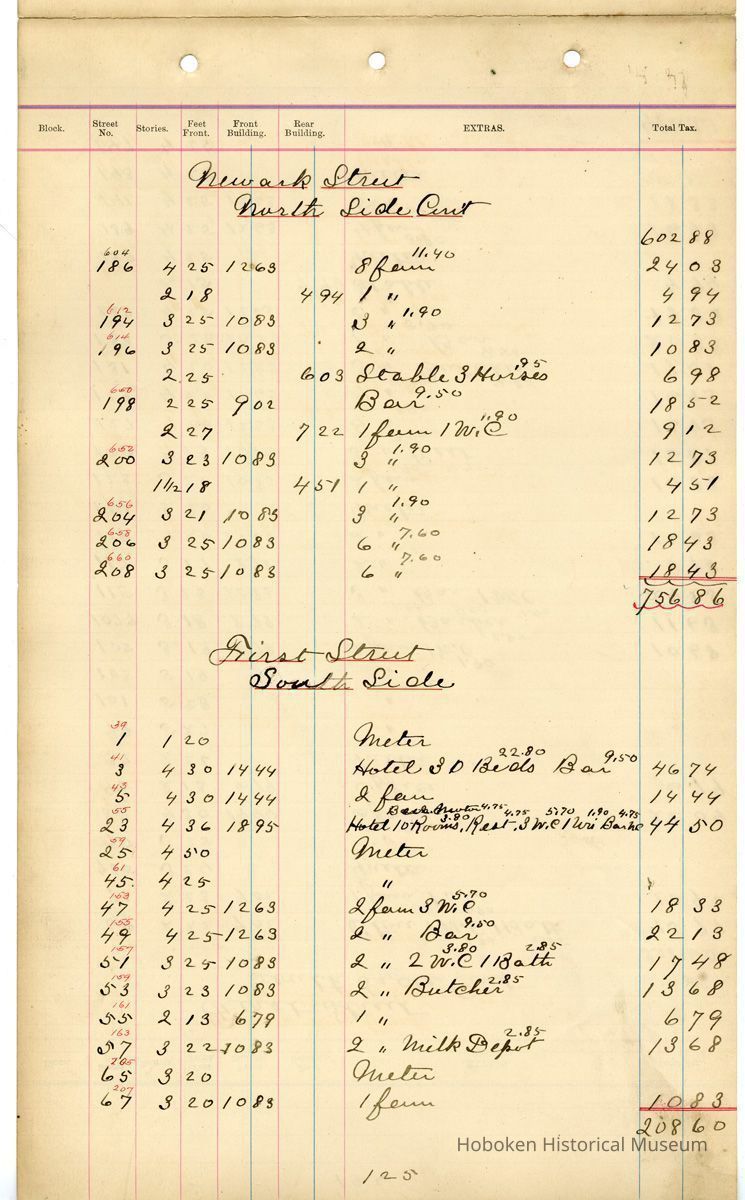 Block. Street No. Stories. Feet Front. Front Building. Rear Building. EXTRAS. Total Tax.
Newark Street
North Side Cont
602 88
604
186 4 25 12 63 8 fam 11.40 24 03
2 18 4 94 1 " 4 94
612
194 3 25 10 83 3 " 1.90 12 73
614
196 3 25 10 83 2 " 10 83
2 25 6 03 Stable 3 Horses .95 6 98
650
198 2 25 9 02 Bar 9.50 18 52
2 27 7 22 1 fam 1 W.C 1.90 9 12
652
200 3 23 10 83 3 " 1.90 12 73
1 1/2 18 4 51 1 " 4 51
656
204 3 21 10 83 3 " 1.90 12 73
658
206 3 25 10 83 6 " 7.60 18 43
660
208 3 25 10 83 6 " 7.60 18 43
756 86
First Street
South Side
39
1 1 20 Meter
41
3 4 30 14 44 Hotel 30 Beds 22.80 Bar 9.50 46 74
43
5 4 30 14 44 2 fam 14 44
55 4.75 4.75 5.70 1.90 4.75
23 4 36 18 95 Hotel 10 Rooms, 3.80 Rest. 3 W.C 1 Uri 44 50
59
25 4 50 Meter
61
45. 4 25 "
153
47 4 25 12 63 2 fam 3 W.C 5.70 18 33
155
49 4 25 12 63 2 " Bar 9.50 22 13
157
51 3 25 10 83 2 " 2 W.C 3.80 1 Bath 2.85 17 48
159
53 3 23 10 83 2 " Butcher 2.85 13 68
161
55 2 13 6 79 1 " 6 79
163
57 3 22 10 83 2 " Milk Depot 2.85 13 68
205
65 3 20 Meter
207
67 3 20 10 83 1 fam 10 83
208 60
Hoboken Historical Museum
125